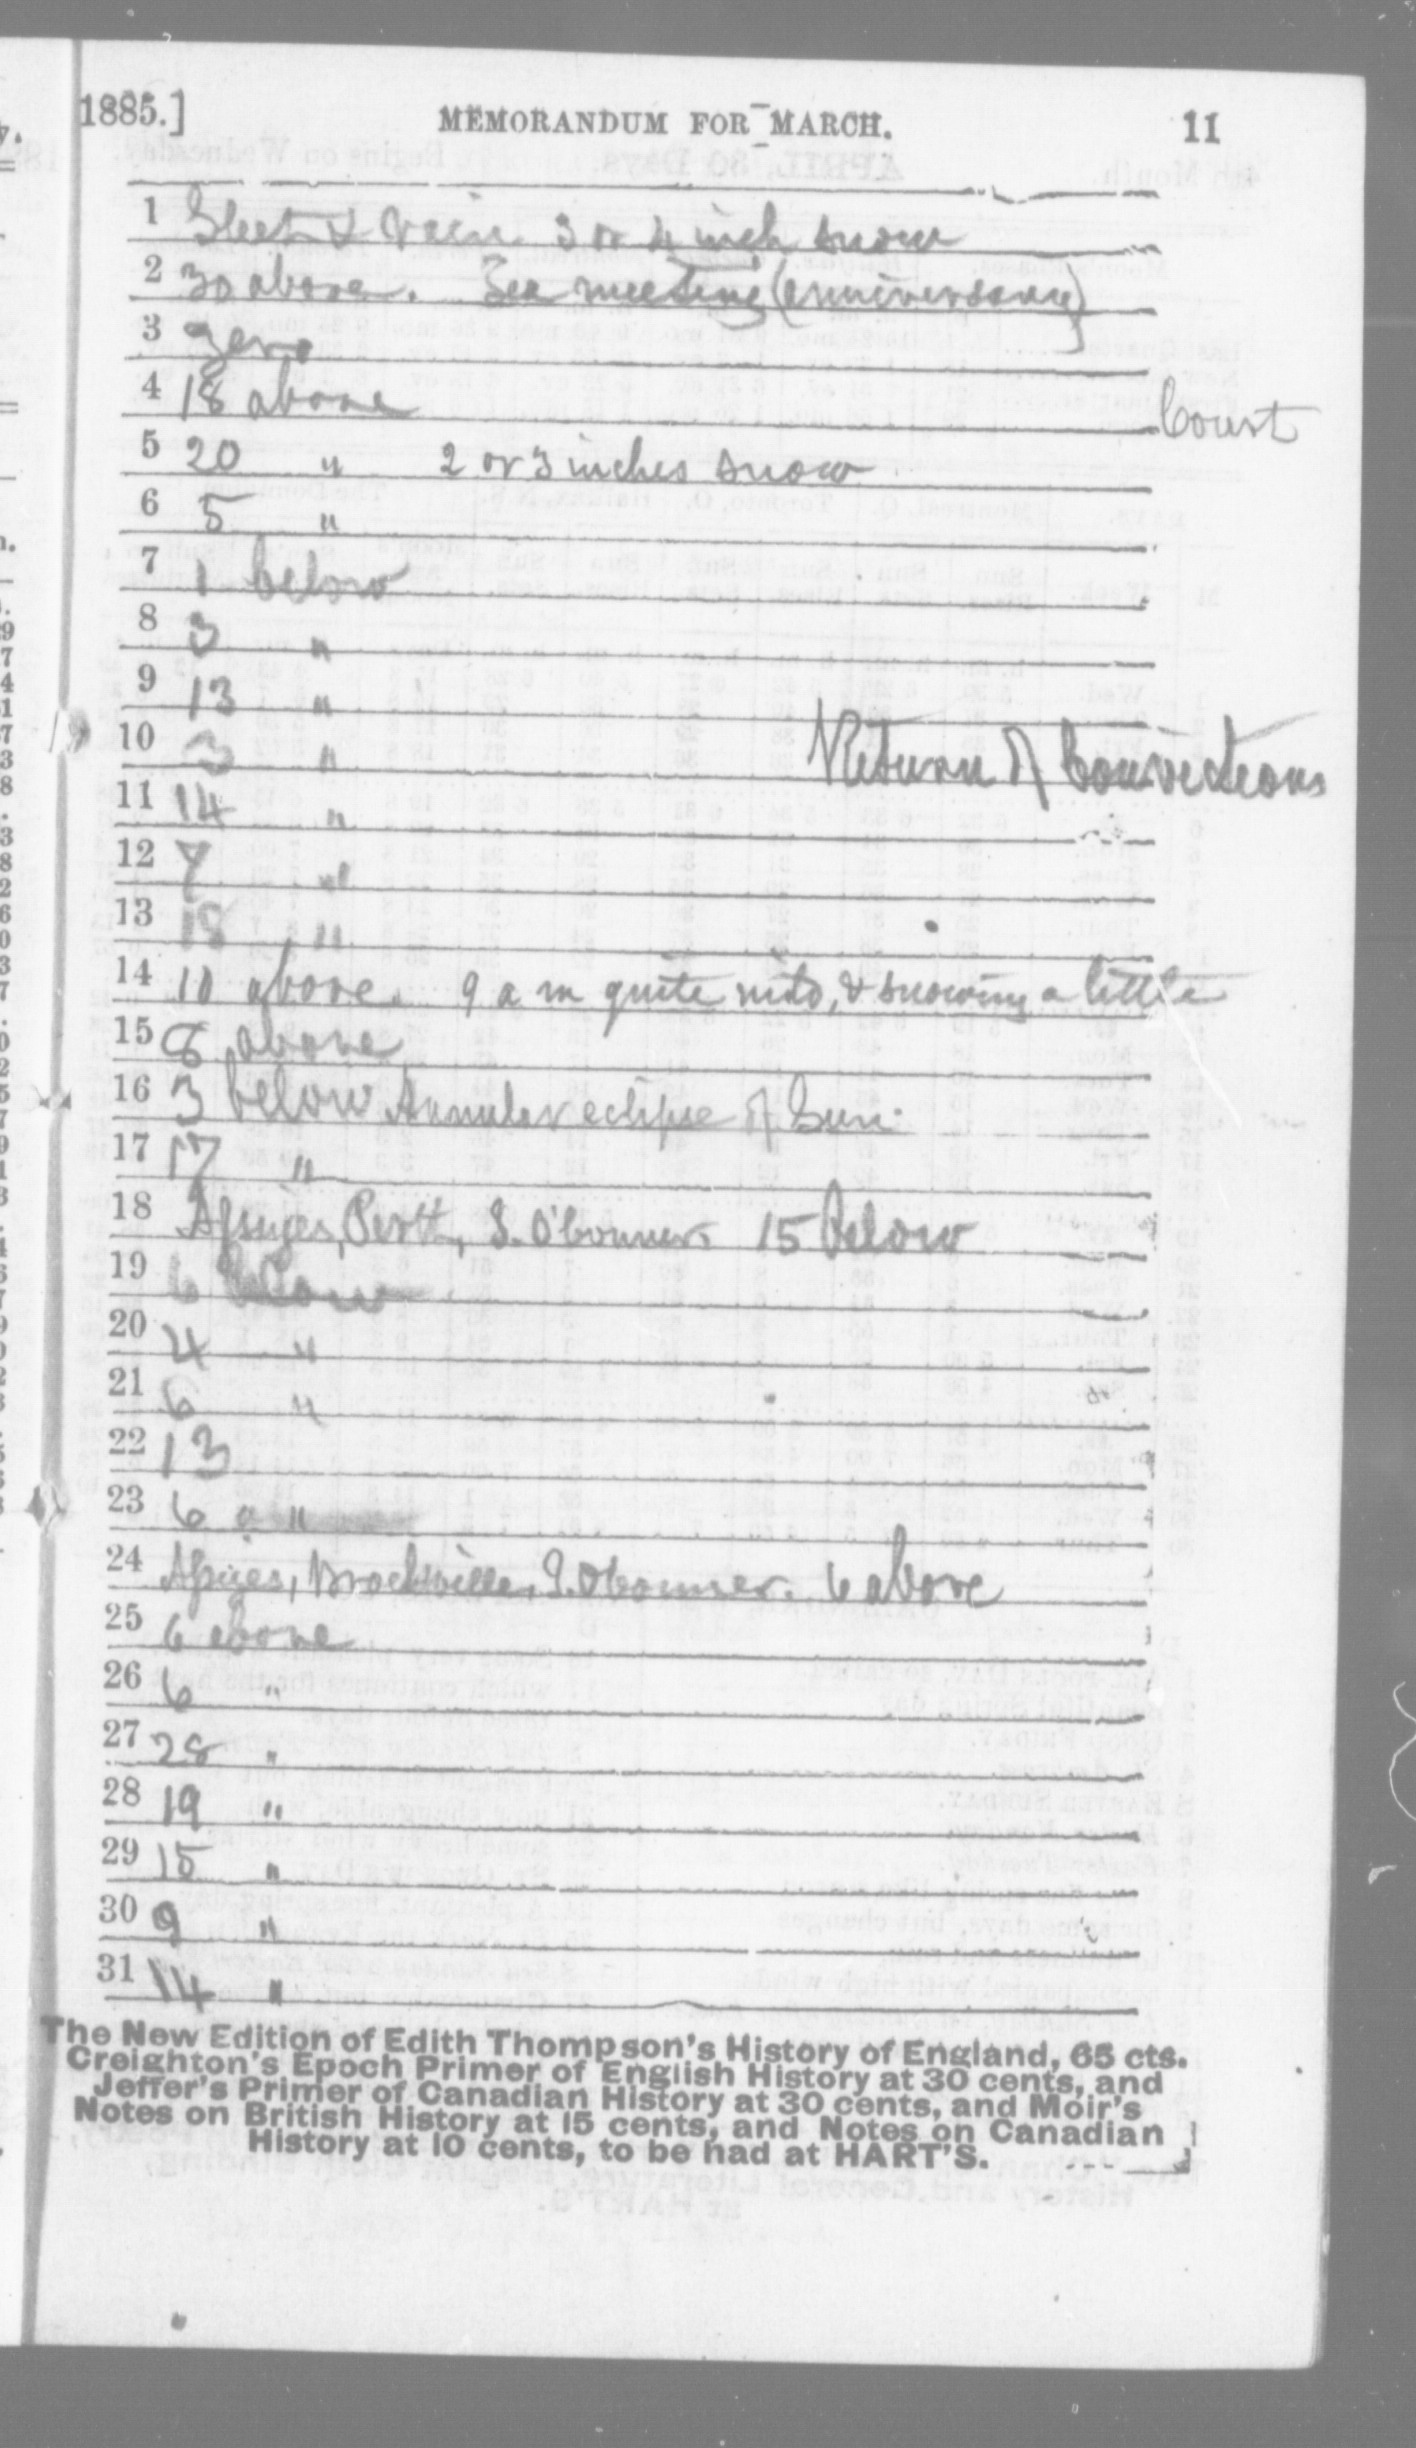 1885.] MEMORANDUM FOR MARCH. 11
1 Sleet & rain 3 or 4 inch snow
2 30 above. Tea meeting (anniversary)
3 zero
4 18 above Court
5 20 " 2 or 3 inches snow
6 5 "
7 1 below
8 3 "
9 13 "
10 3 " Return of Convictions
11 14 "
12 7 "
13 18 "
14 10 above. 9 a m quite mild, & snowing a little
15 8 above
16 3 below Annular eclipse of Sun
17 17 "
18 Assizes, Perth, J. O'Connor 15 below
19 6 below
20 4 "
21 6 "
22 13
23 6 "
24 Assizes, Brockville, J. O'Connor. 6 above
25 6 above
26 6 "
27 28 "
28 19 "
29 15 "
30 9 "
31 14 "
The New Edition of Edith Thompson's History of England, 65 cts.
Creighton's Epoch Primer of English History at 30 cents, and
Jeffer's Primer of Canadian History at 30 cents, and Moir's
Notes on British History at 15 cents, and Notes on Canadian
History at 10 cents, to be had at HART'S.